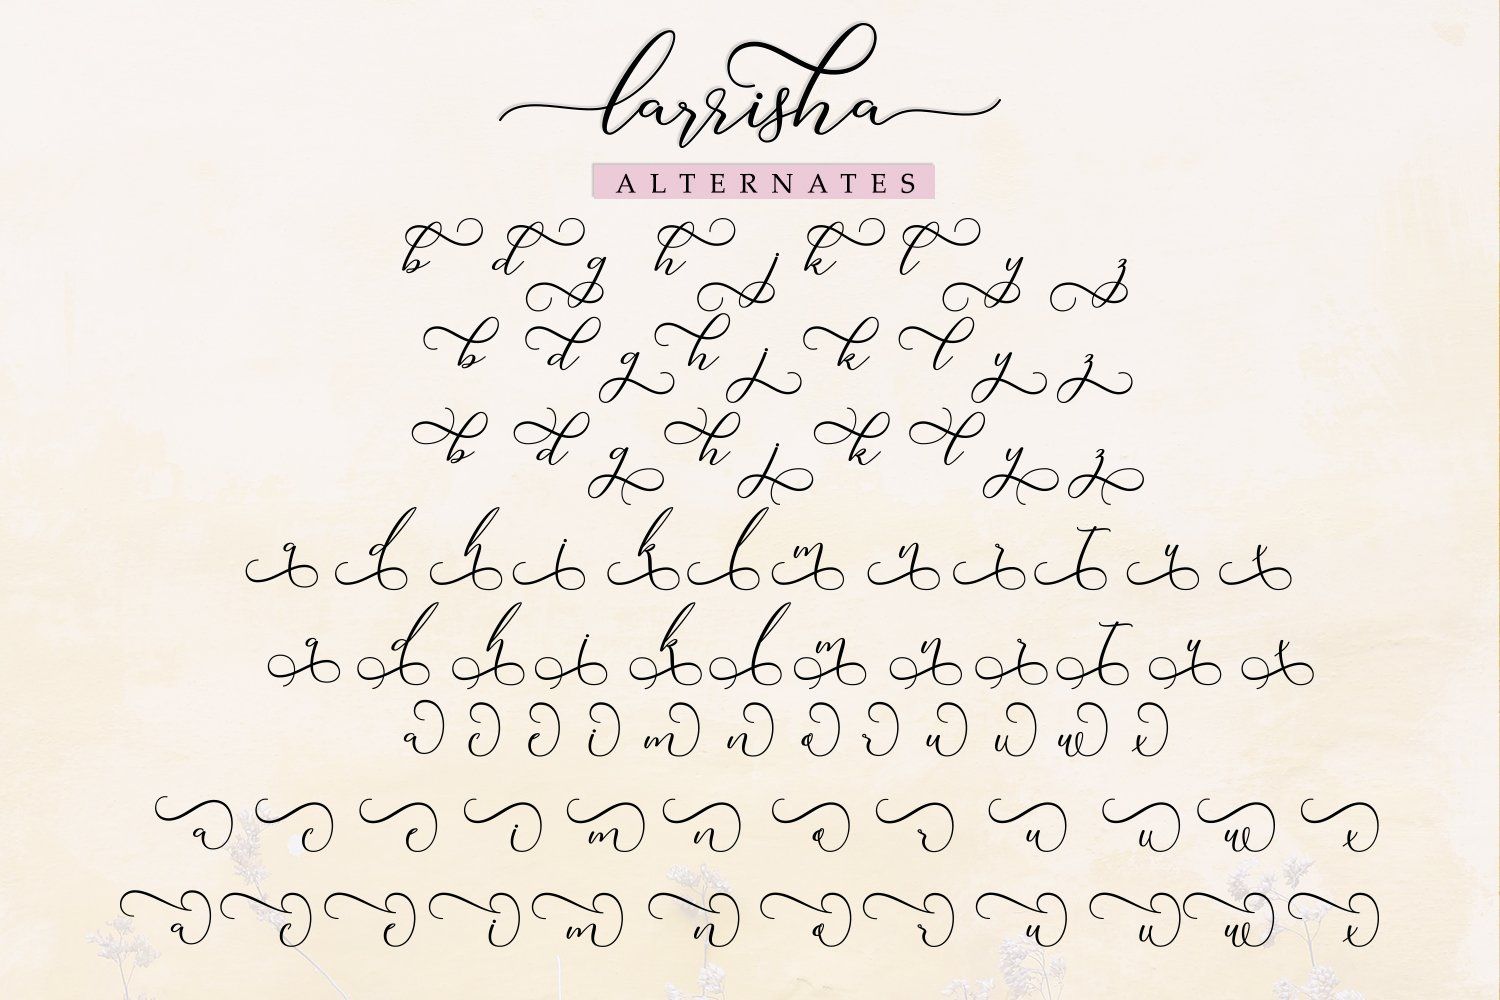 larrisha
ALTERNATES
b d g h j k l y z
b d g h j k l y z
b d g h j k l y z
a d h i k l m n r t u x
a d h i k l m n r t u x
a c e i m n o r u u w x
a c e i m n o r u u w x
a c e i m n o r u u w x